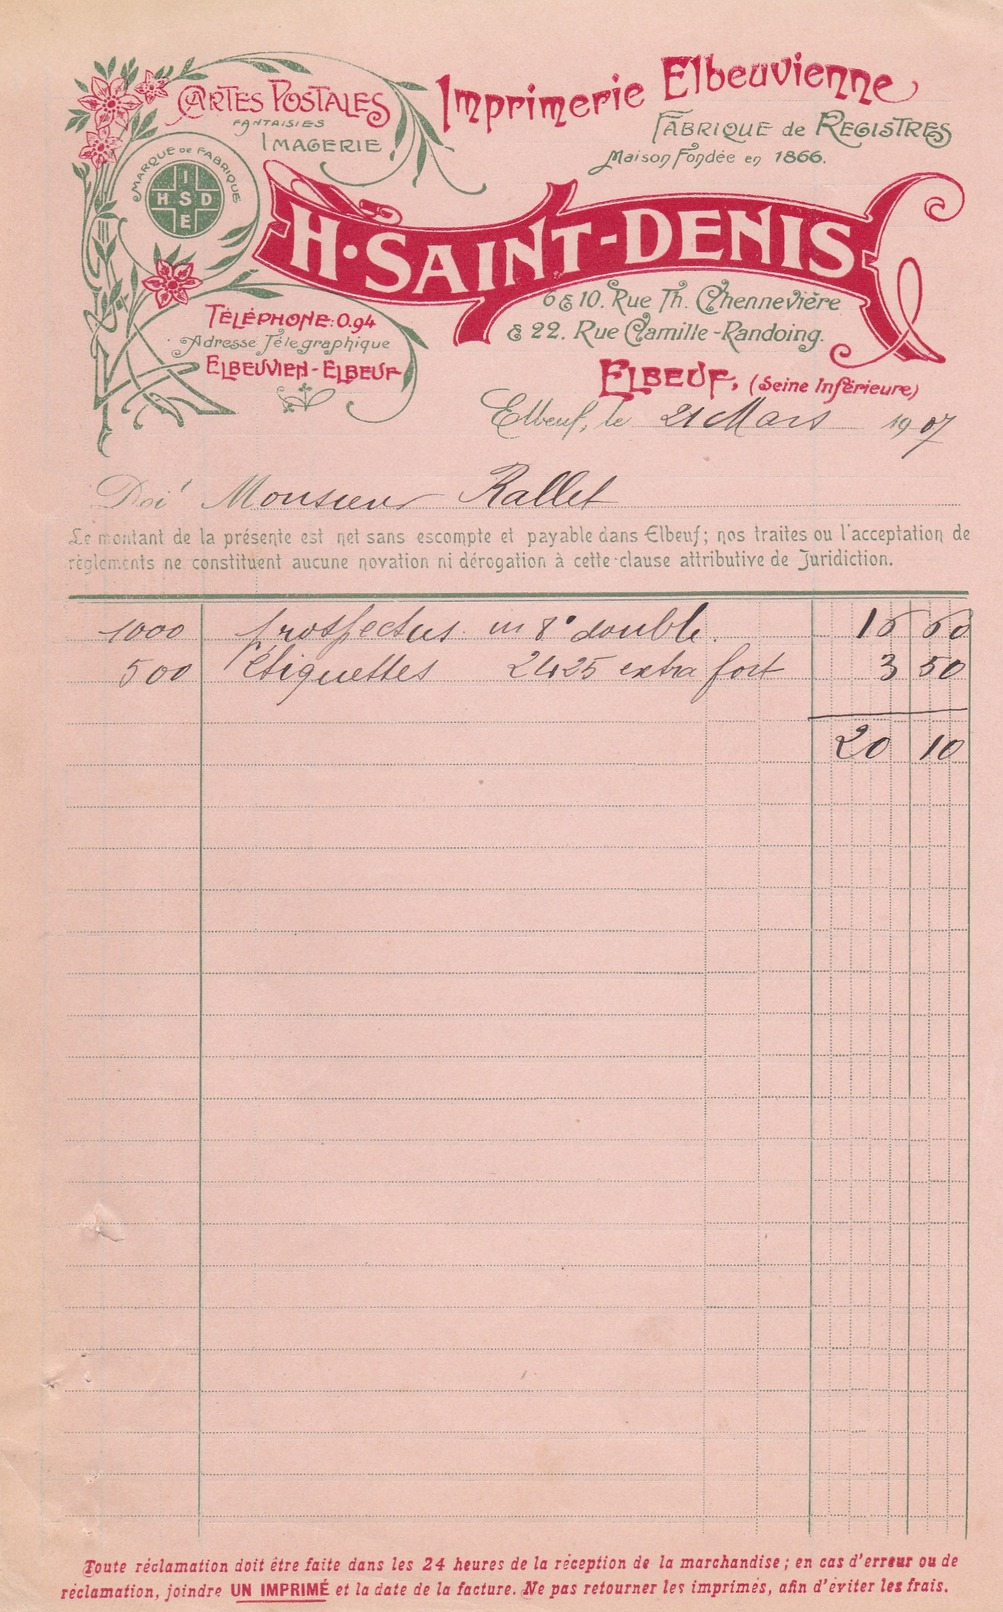 CARTES POSTALES
FANTAISIES
IMAGERIE
MARQUE DE FABRIQUE
I
H S D
E
Imprimerie Elbeuvienne
FABRIQUE de REGISTRES
Maison Fondée en 1866.
H. SAINT-DENIS
6 & 10. Rue Th. Chennevière
& 22. Rue Camille-Randoing.
TÉLÉPHONE: 0.94
Adresse Télegraphique
ELBEUVIEN-ELBEUF
ELBEUF, (Seine Inférieure)
Elbeuf, le 21 Mars 1907
Doit Monsieur Rallet
Le montant de la présente est net sans escompte et payable dans Elbeuf; nos traites ou l'acceptation de
règlements ne constituent aucune novation ni dérogation à cette clause attributive de Juridiction.
1000 prospectus in 8° double. 16 60
500 Etiquettes 24x25 extra fort 3 50
20 10
Toute réclamation doit être faite dans les 24 heures de la réception de la marchandise; en cas d'erreur ou de
réclamation, joindre UN IMPRIMÉ et la date de la facture. Ne pas retourner les imprimés, afin d'éviter les frais.